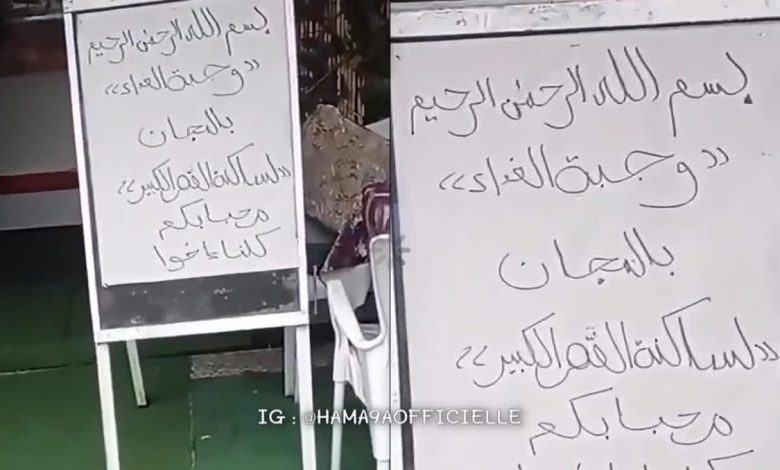 بسم الله الرحمن الرحيم
«وجبة الغداء»
بالمجان
«لساكنة القصر الكبير»
مرحبا بكم
كلنا خوا
بسم الله الرحمن الرحيم
«وجبة الغداء»
بالمجان
«لساكنة القصر الكبير»
مرحبا بكم
IG : @HAMA9AOFFICIELLE